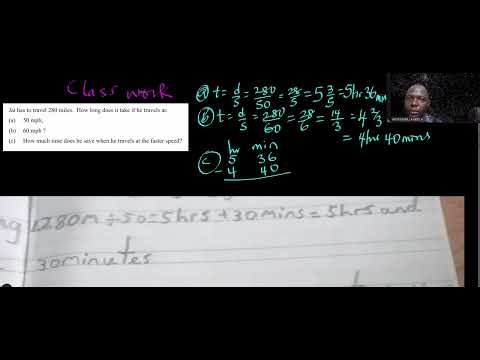 Class work
Jai has to travel 280 miles. How long does it take if he travels at:
(a) 50 mph,
(b) 60 mph ?
(c) How much time does he save when he travels at the faster speed?
(a) t = d/s = 280/50 = 28/5 = 5 3/5 = 5hr 36 min
(b) t = d/s = 280/60 = 28/6 = 14/3 = 4 2/3
= 4hr 40 mins
(c) hr min
5 36
- 4 40
280m ÷ 50 = 5hrs + 30mins = 5hrs and
30minutes